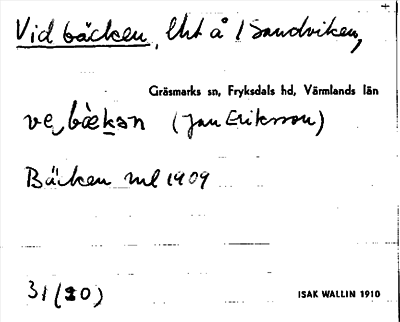 Vid bäcken, lht å / Sandviken,
Gräsmarks sn, Fryksdals hd, Värmlands län
ve bäkən (Jan Eriksson)
Bäcken ml 1909
31 (20)
ISAK WALLIN 1910